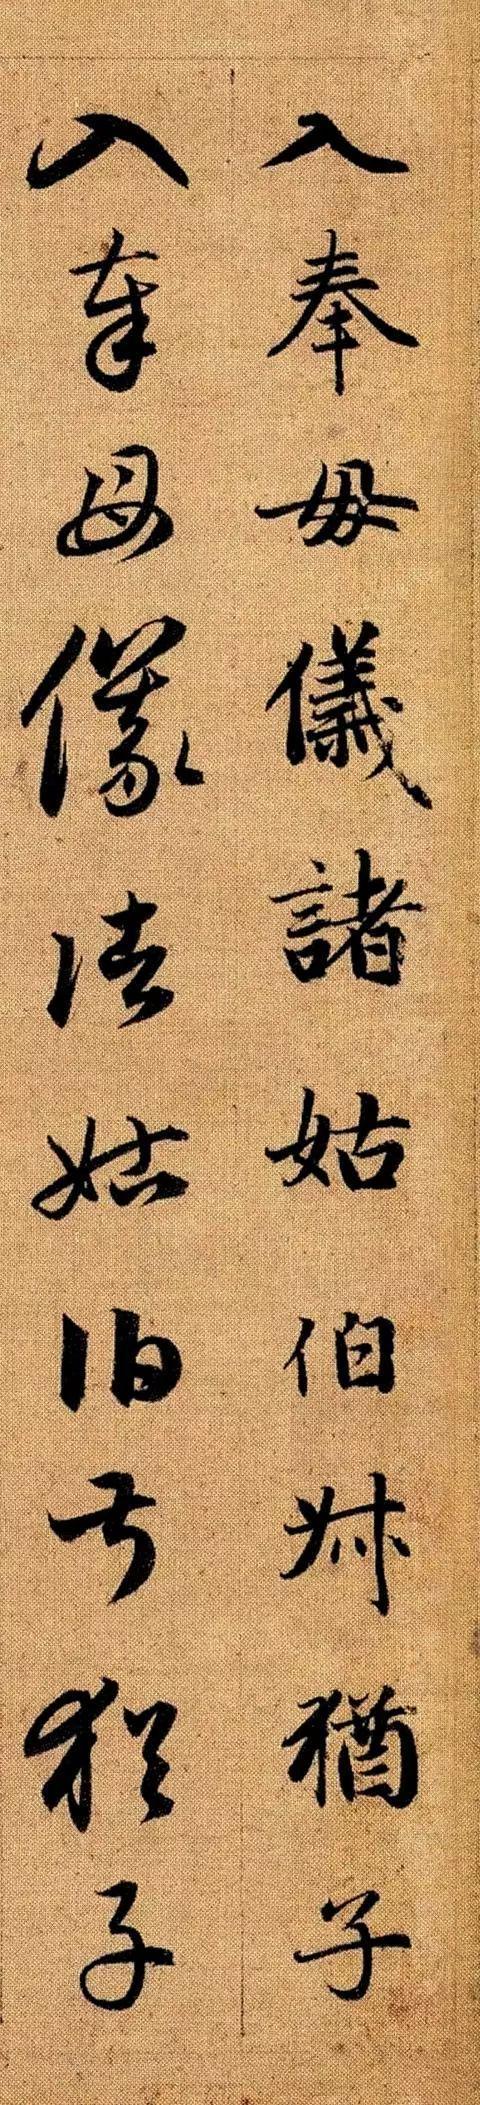 入奉母儀諸姑伯叔猶子
入奉母儀諸姑伯叔猶子